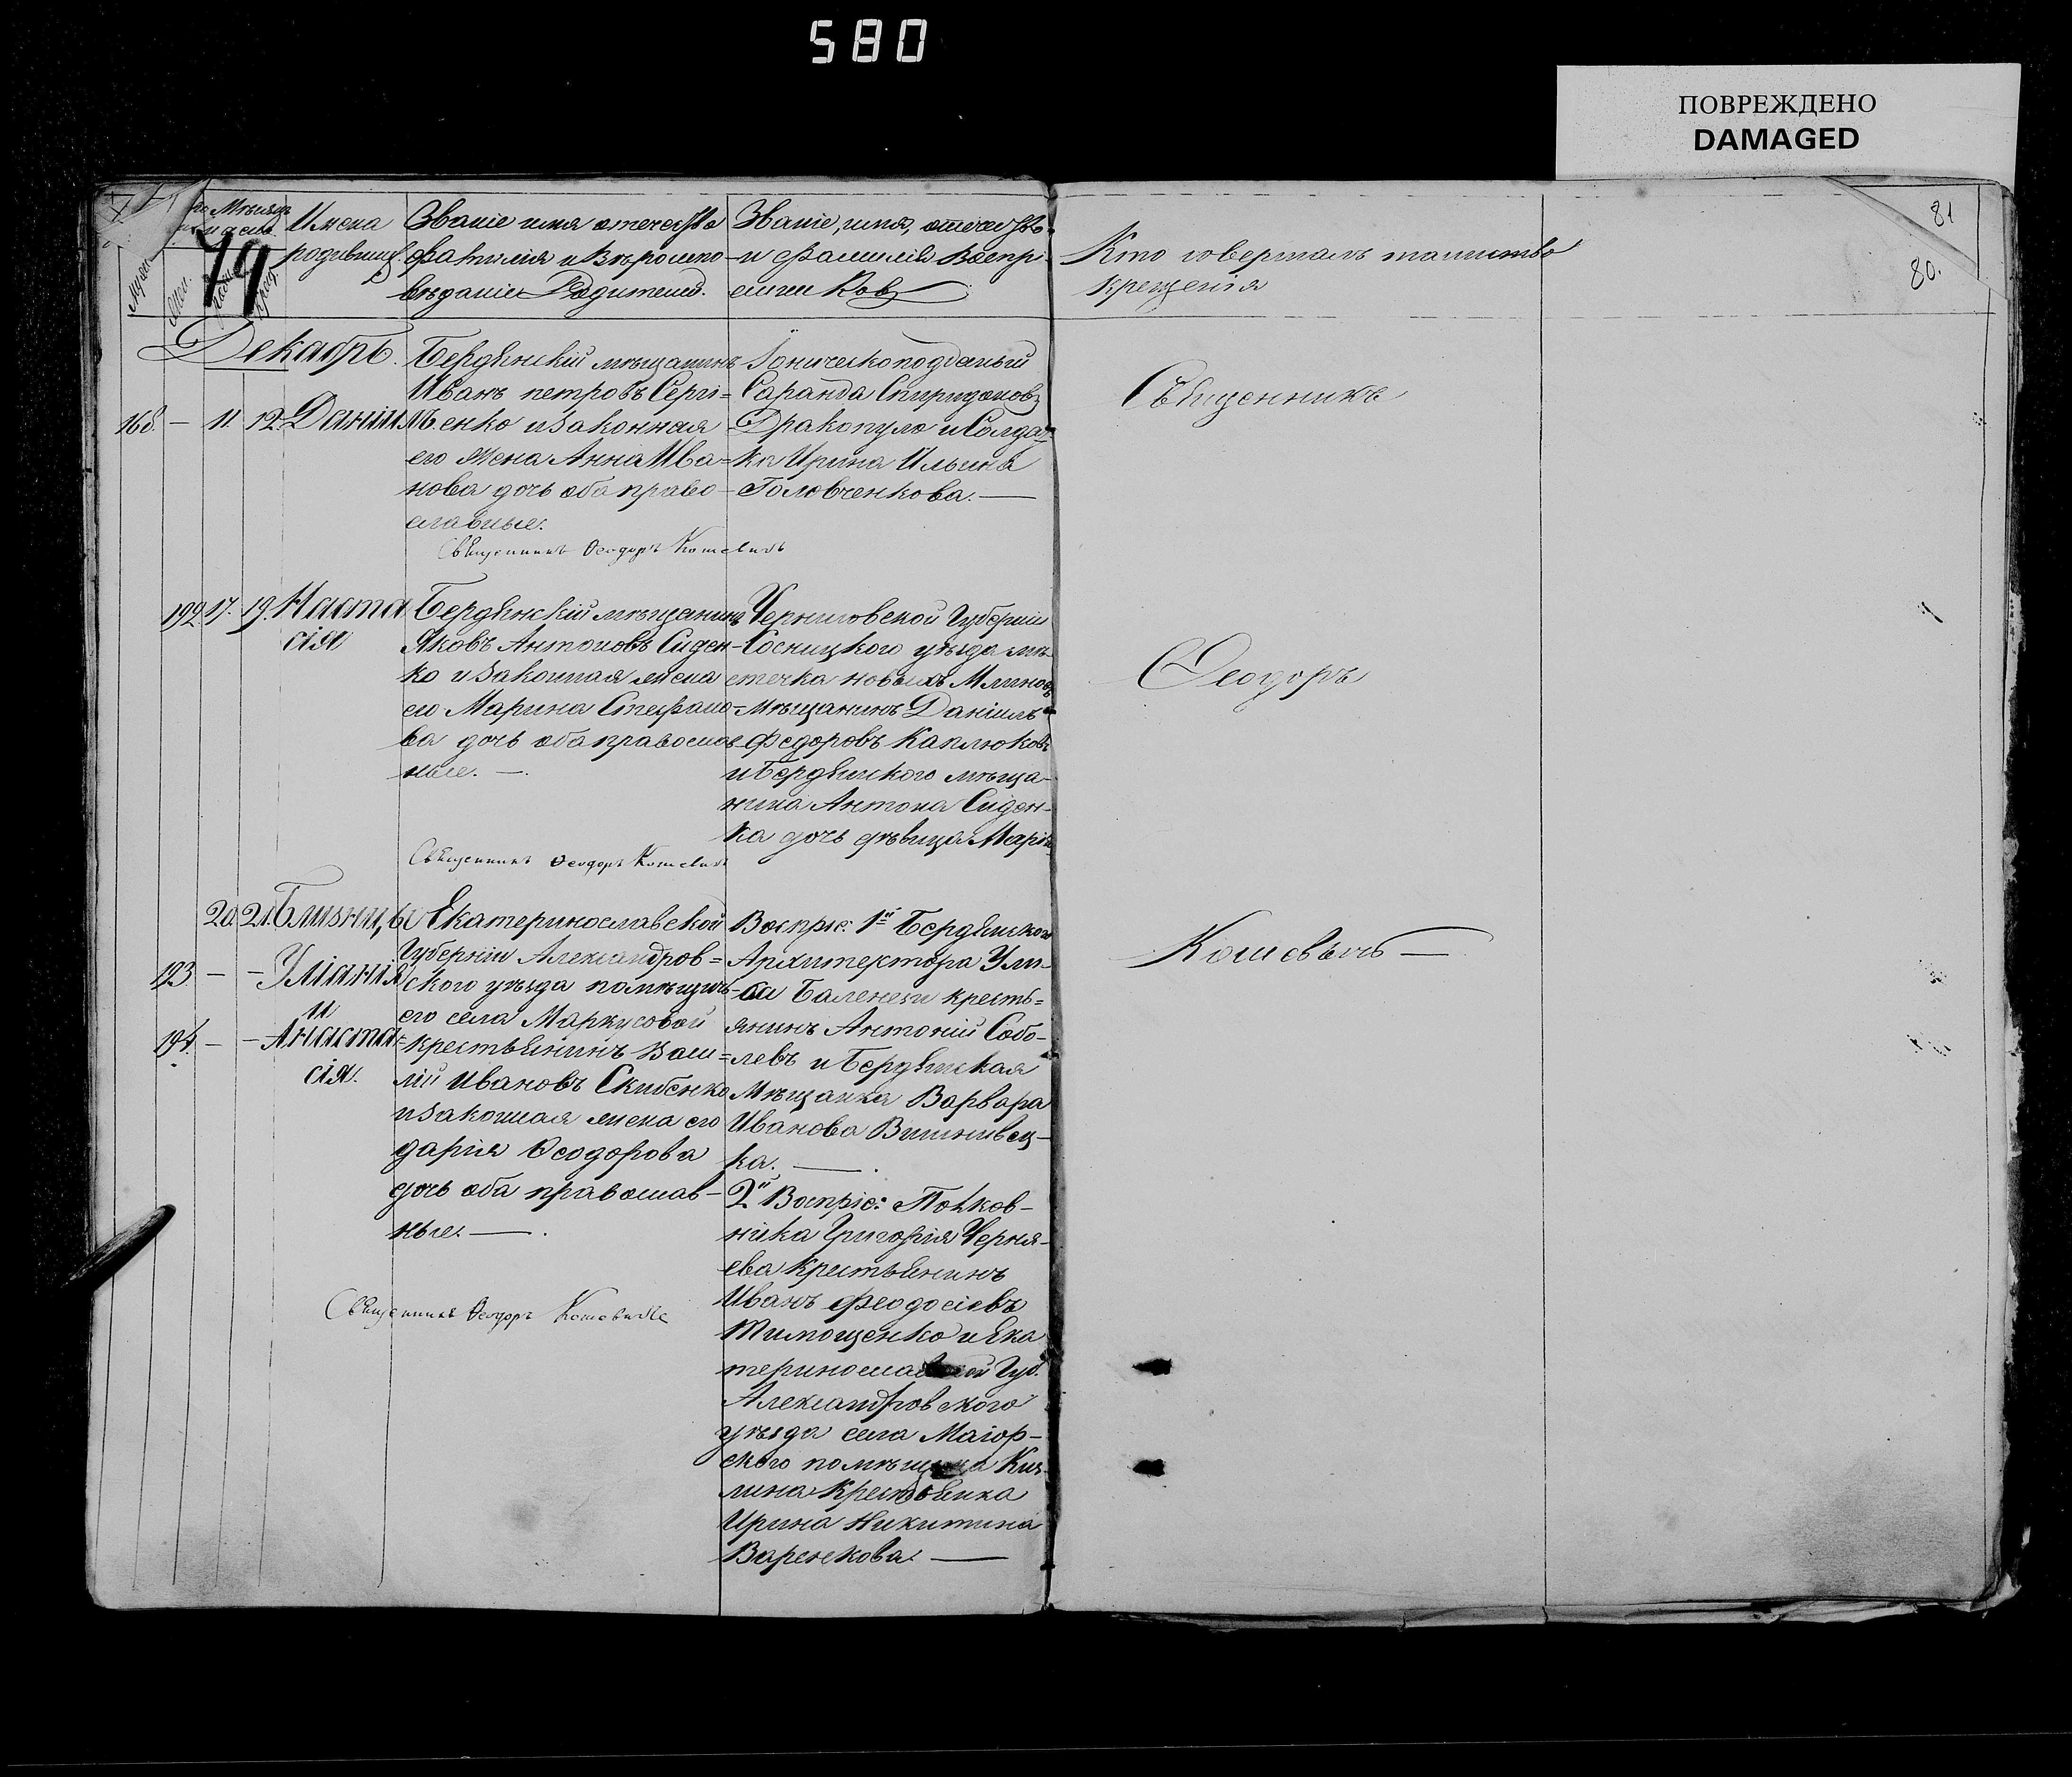 580
ПОВРЕЖДЕНО
DAMAGED
81
80.
79
Мѣсяцъ
и день.
Имена
родивших.
Званіе имя отечество
фамилія и Вѣроиспо-
вѣданіе Родителей.
Званіе, имя, отечество
и фамилія Воспрі-
емниковъ
Кто совершалъ таинство
крещенія
Декабрь.
168. — 11. 12. Даніилъ
Бердянскій мѣщанинъ
Иванъ петровъ Сергі=
енко и законная
его жена Анна Ива=
нова дочь оба право-
славные.
Священникъ Ѳеодоръ Кошевичъ
Іоническоподданый
Саранда Спиридоновъ
Дракопуло и Солдат-
ка Ирина Ильина
Головченкова. —
Священникъ
192. 17. 19. Наста
сія
Бердянскій мѣщанинъ
Яковъ Антоновъ Сиден-
ко и законная жена
его Марина Стефано=
ва дочь оба православ-
ные. —.
Священникъ Ѳеодоръ Кошевичъ
Черниговской Губерніи
Сосницкого уѣзда мѣ-
стечка новыхъ Млиновъ
Мѣщанинъ Даніилъ
Федоровъ Каплюковъ
и Бердянского мѣща-
нина Антона Сиден-
ка дочь дѣвица Марія
Ѳеодоръ
20. 21. Близницы
193 — — Уліанія
и
194. — — Анаста=
сія.
Екатеринославской
Губерніи Александров=
ского уѣзда помѣщичь-
его села Маркусовой
крестьянинъ Васи=
лій Ивановъ Скибенко
и законная жена его
дарія Ѳеодорова
дочь оба православ-
ные. — .
Священникъ Ѳеодоръ Кошевичъ
Воспріе: 1й Бердянского
Архитектора
крестъ=
янинъ Антоній Собо-
левъ и Бердянская
Мѣщанка Варвара
Иванова Вишнивец-
ка. — .
2й Воспріе: Полков-
ника Григорія Черня-
ева Крестьянинъ
Иванъ Феодосіевъ
Тимощенко и Ека
теринославской Губ.
Александровского
уѣзда села Маіор-
ского помѣщика
Крестьянка
Ирина Никитина
Варенкова. —
Кошевичъ —